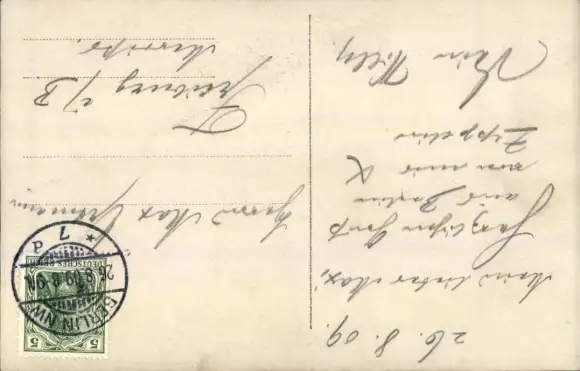 26. 8. 09.
Mein lieber Max,
Herzlichen Gruß
aus Berlin
von mir &
Zeppelin
Dein Willy.
Herrn Max
Freiburg i/B
BERLIN NW
26.8.09.
* 7 d
DEUTSCHES REICH
5 5